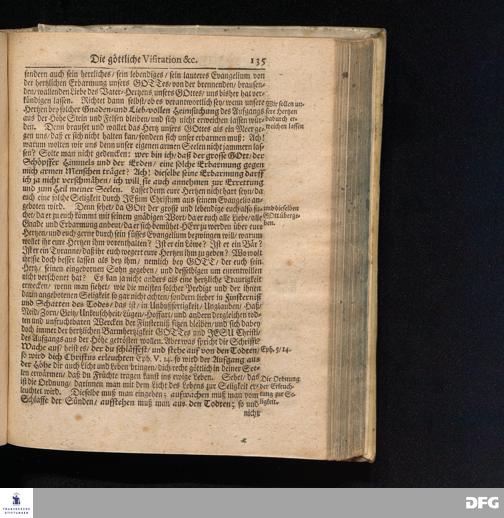 Die göttliche Visitation &c. 135
sondern auch sein herrliches/ sein lebendiges/ sein lauteres Evangelium von
der hertzlichen Erbarmung unsers GOTTes/ von der brennenden/ brausen-
den/ wallenden Liebe des Vater-Hertzens unsers GOttes/ uns bisher hat ver-
kündigen lassen. Richtet dann selbst/ ob es verantwortlich sey/ wenn unsere
Hertzen bey solcher Gnaden-und Lieb-vollen Heimsuchung des Aufgangs
aus der Höhe Stein und Felsen bleiben/ und sich nicht erweichen lassen wür-
den. Denn brauset und wallet das Hertz unsers GOttes als ein Meer ge-
gen uns/ daß er sich nicht halten kan/ sondern sich unser erbarmen muß: Ach!
warum wolten wir uns denn unser eigenen armen Seelen nicht jammern las-
sen? Solte man nicht gedencken: wer bin ich/ daß der grosse GOtt/ der
Schöpffer Himmels und der Erden/ eine solche Erbarmung gegen
mich armen Menschen träget? Ach! dieselbe seine Erbarmung darff
ich ja nicht verschmähen/ ich will sie auch annehmen zur Errettung
und zum Heil meiner Seelen. Lasset denn eure Hertzen nicht hart seyn/ da
euch eine solche Seligkeit durch JEsum Christum aus seinem Evangelio an-
geboten wird. Denn sehet/ da GOtt der grosse und lebendige euch also su-
chet/ da er zu euch kömmt mit seinem gnädigen Wort/ da er euch alle Liebe/ alle
Gnade und Erbarmung anbeut/ da er sich bemühet HErr zu werden über eure
Hertzen/ und euch gerne durch sein süsses Evangelium bezwingen will/ warum
wollet ihr eure Hertzen ihm vorenthalten? Ist er ein Löwe? Ist er ein Bär?
Ist er ein Tyrann/ daß ihr euch wegert eure Hertzen ihm zu geben? Wo wolt
ihr sie doch besser lassen als bey ihm/ nemlich bey GOTT/ der euch sein
Hertz/ seinen eingebornen Sohn gegeben/ und desselbigen um eurentwillen
nicht verschonet hat? Es kan ja nicht anders als eine hertzliche Traurigkeit
erwecken/ wenn man siehet/ wie die meisten solcher Predigt und der ihnen
darin angebotenen Seligkeit so gar nicht achten/ sondern lieber in Finsterniß
und Schatten des Todes/ das ist/ in Unbußfertigkeit/ Unglauben/ Haß/
Neid/ Zorn/ Geitz/ Unkeuschheit/ Eugen/ Hoffart/ und andern dergleichen tod-
ten und unfruchtbaren Wercken der Finsterniß sitzen bleiben/ und sich dabey
doch immer der hertzlichen Barmhertzigkeit GOTTes und JESU Christi/
des Aufgangs aus der Höhe getrösten wollen. Aber was spricht die Schrifft?
Wache auf/ heißt es/ der du schläffest/ und stehe auf von den Todten/
so wird dich Christus erleuchten Eph. V, 14. so wird der Aufgang aus
der Höhe dir auch Licht und Leben bringen/ dich recht göttlich in deiner See-
len erwärmen/ daß du Früchte tragen kanst ins ewige Leben. Sehet/ das
ist die Ordnung/ darinnen man mit dem Licht des Lebens zur Seligkeit er-
leuchtet wird. Dieselbe muß man eingehen; aufwachen muß man vom
Schlaffe der Sünden/ aufstehen muß man aus den Todten; so und
nicht
Wir sollen un-
sere Hertzen
dadurch er-
weichen lassen
und dieselben
GOtt überge-
ben.
Eph. 5/14.
Die Ordnung
der Erleuch-
tung zur Se-
ligkeit.
FRANCKESCHE
STIFTUNGEN
DFG